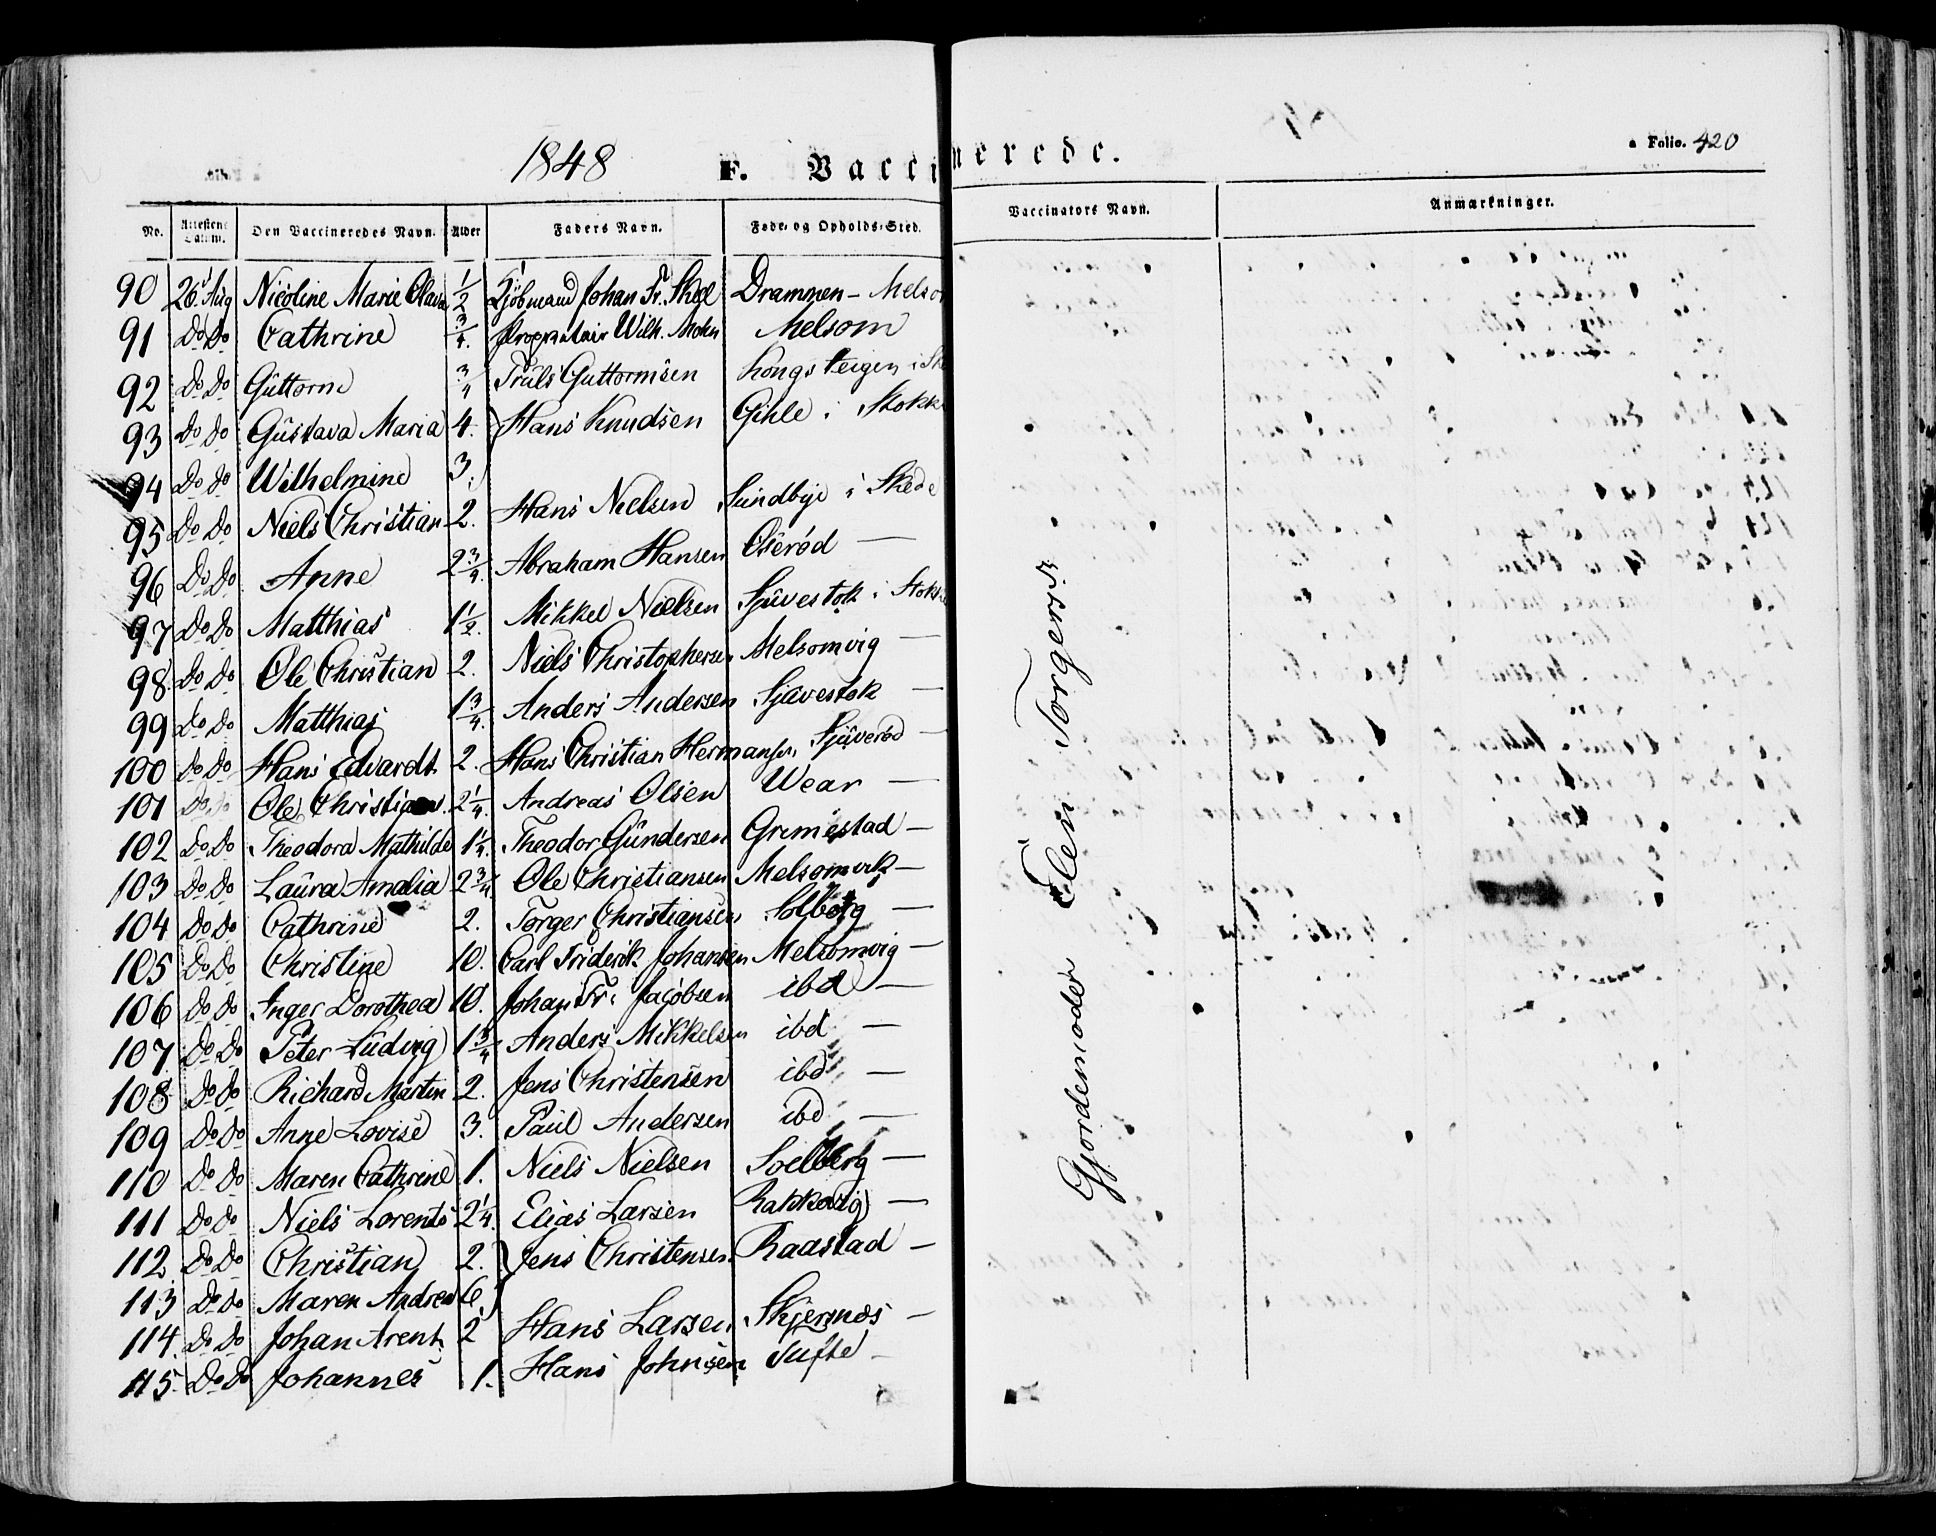 1848 F. Vaccinerede. a Folio. 420
No. Attestens Datum. Den Vaccineredes Navn. Alder Faders Navn. Føde- og Opholds-Sted. Vaccinators Navn. Anmærkninger.
90 26 Aug Nicoline Marie Olava 1/2 Kjöbmand Johan Fr. Drammen - Melsom
91 Do Do Cathrine 3/4. Proprietair Wilh. Melsom
92 Do Do Guttorm 3/4 Truls Guttormsen Longsteigen i
93 Do Do Gustava Maria 4. Hans Knudsen Gihle i Stokke
94 Do Do Wilhelmine 3.
95 Do Do Niels Christian 2. Hans Nielsen Sundbye i Skede
96 Do Do Anne 2 3/4. Abraham Hansen Oseröd —
97 Do Do Matthias 1 1/2. Mikkel Nielsen Sjuvestok i Stokke
98. Do Do Ole Christian 2. Niels Christophersen Melsomvig —
99 Do Do Matthias 1 3/4. Anders Andersen Sjuvestok —
100 Do Do Hans Edvardt 2. Hans Christian Hermansen Sjüveröd —
101 Do Do Ole Christian 2 1/4. Andreas Olsen Wear —
102 Do Do Theodora Mathilde 1 1/4. Theodor Gundersen Grimestad —
103 Do Do Laura Amalia 2 3/4 Ole Christiansen Melsomvik —
104 Do Do Cathrine 2. Torger Christiansen Solberg —
105 Do Do Christine 10. Carl Friderik Johansen Melsomvig —
106 Do Do Inger Dorothea 10. Johan Fr. Jacobsen ibd —
107 Do Do Peter Ludvig 1 3/4 Anders Mikkelsen ibd —
108 Do Do Richard Martin 2. Jens Christensen ibd —
109 Do Do Anne Lovise 3. Paul Andersen ibd —
110 Do Do Maren Cathrine 1. Niels Nielsen Soelberg —
111 Do Do Niels Lorents 2 1/4. Elias Larsen Rakkevig —
112 Do Do Christian 2. Jens Christensen Raastad —
113 Do Do Maren Andrea 6.
114. Do Do Johan Arent 2 Hans Larsen Skjernæs —
115. Do Do Johannes 1. Hans Johnsen —
Gjordemoder Elen Torgersen